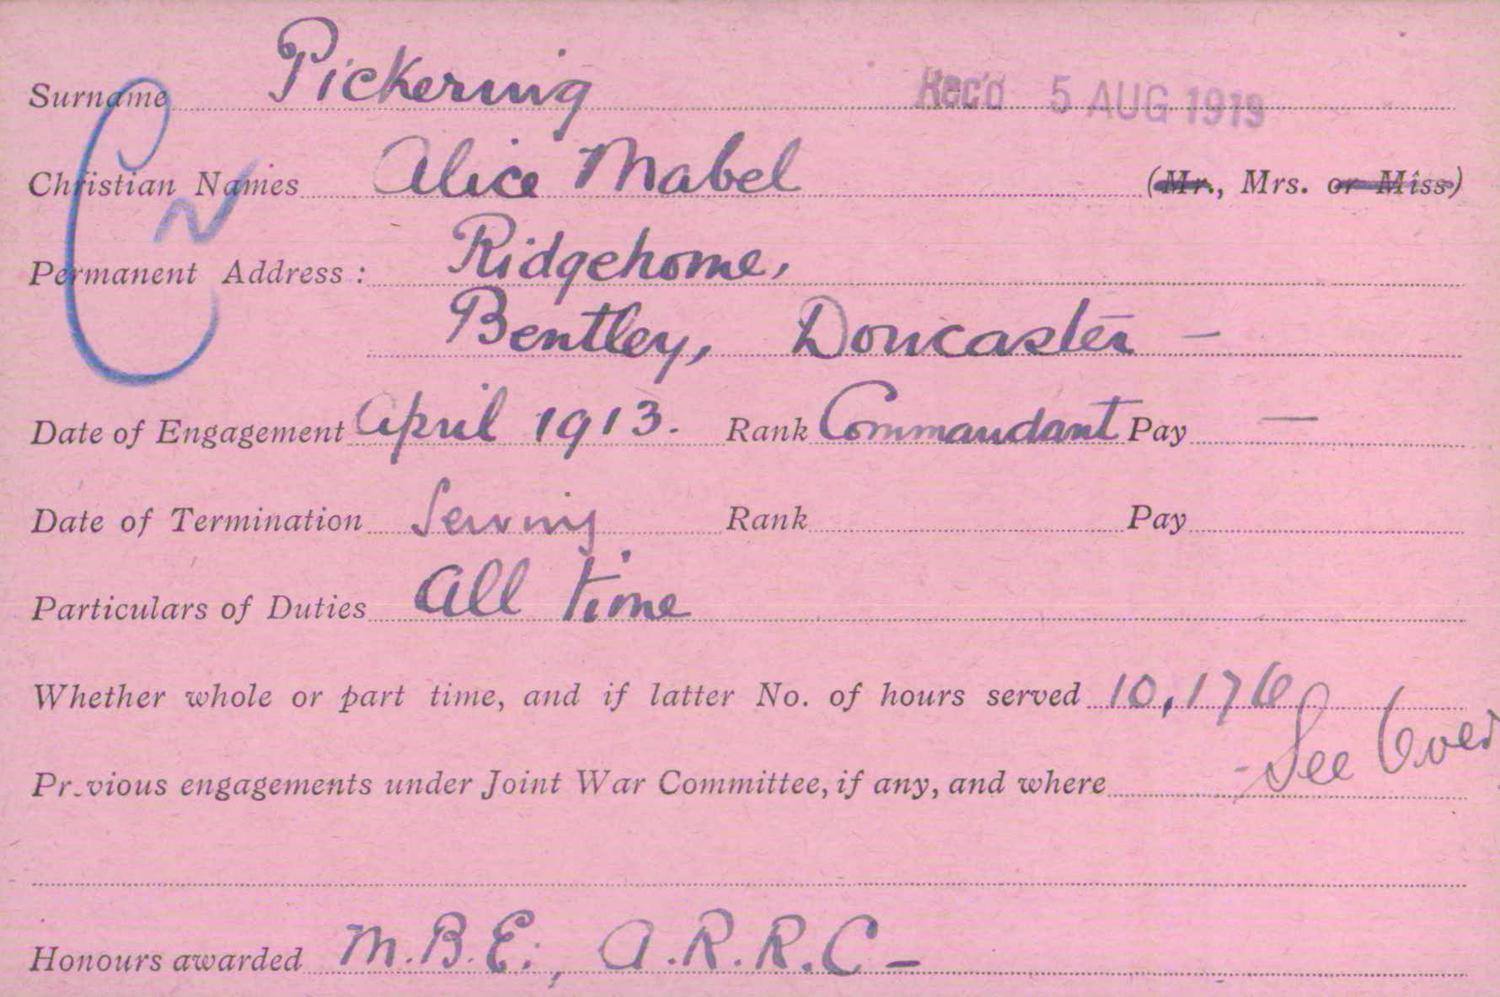 Surname Pickering Rec'd 5 AUG 1919
Christian Names Alice Mabel (Mr., Mrs. or Miss)
Permanent Address: Ridgehome,
Bentley, Doncaster –
Date of Engagement April 1913. Rank Commandant Pay —
Date of Termination Serving Rank Pay
Particulars of Duties All time
Whether whole or part time, and if latter No. of hours served 10,176
Previous engagements under Joint War Committee, if any, and where - See Over
Honours awarded M.B.E., A.R.R.C –